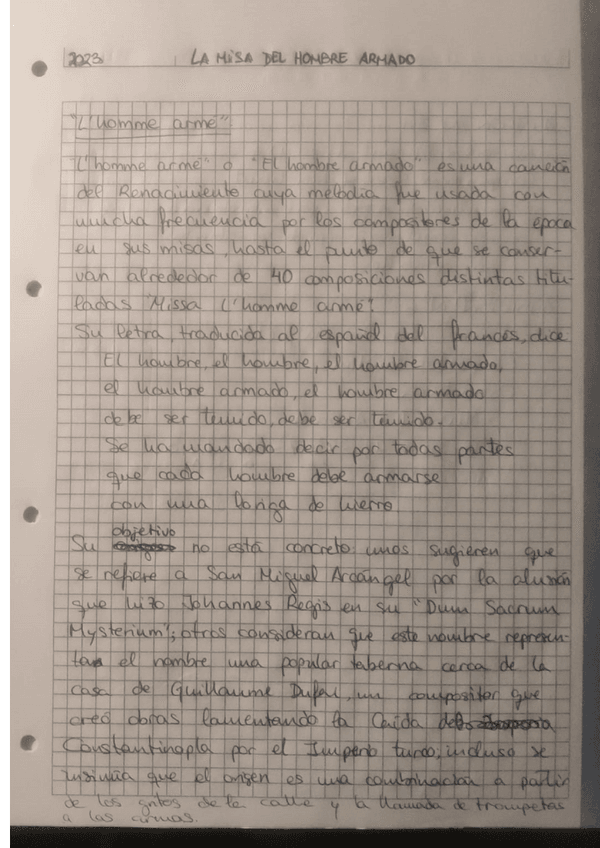 2023 LA MISA DEL HOMBRE ARMADO
"L'homme armé"
"L'homme armé" o "El hombre armado" es una canción
del Renacimiento cuya melodía fue usada con
mucha frecuencia por los compositores de la época
en sus misas, hasta el punto de que se conser-
van alrededor de 40 composiciones distintas titu-
ladas Missa L'homme armé.
Su letra, traducida al español del francés, dice
El hombre, el hombre, el hombre armado,
el hombre armado, el hombre armado
debe ser temido, debe ser temido.
Se ha mandado decir por todas partes
que cada hombre debe armarse
con una loriga de hierro
objetivo
Su no está concreto unos sugieren que
se refiere a San Miguel Arcángel por la alusión
que hizo Johannes Regis en su "Dum Sacrum
Mysterium"; otros consideran que este nombre represen-
tan el nombre una popular taberna cerca de la
casa de Guillaume Dufay, un compositor que
creó obras lamentando la Caída de
Constantinopla por el Imperio turco, incluso se
insinúa que el origen es una combinación a partir
de los gritos de la calle y la llamada de trompetas
a las armas.